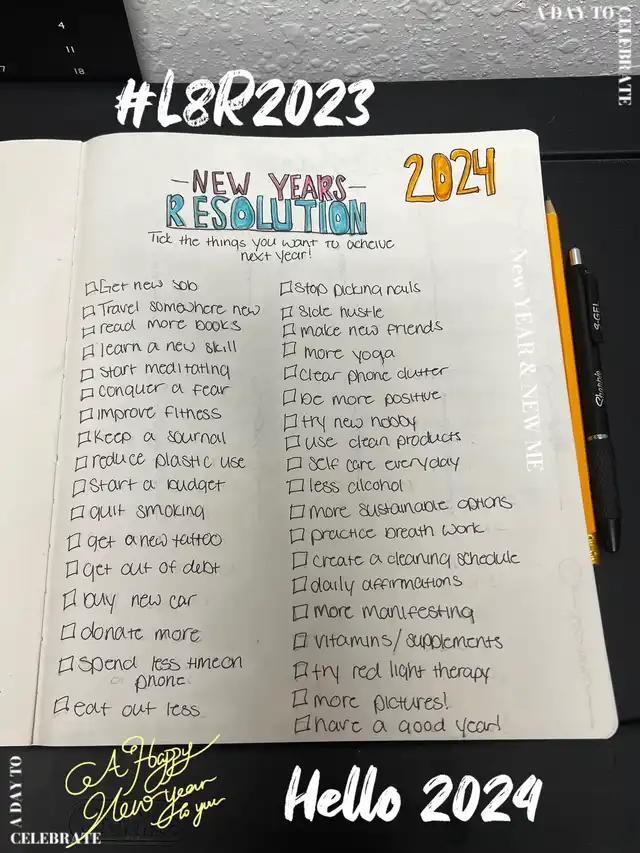 4
11
18
A DAY TO
CELEBRATE
#L8R2023
2024
-NEW YEARS-
RESOLUTION
Tick the things you want to acheive
next year!
Get new job
Travel somewhere new
read more books
learn a new skill
start meditating
conquer a fear
improve fitness
keep a journal
reduce plastic use
start a budget
quit smoking
get a new tattoo
get out of debt
buy new car
donate more
spend less time on
phone
eat out less
stop picking nails
side hustle
make new friends
more yoga
clear phone clutter
be more positive
try new hobby
use clean products
self care everyday
less alcohol
more sustainable options
practice breath work
create a cleaning schedule
daily affirmations
more manifesting
vitamins/supplements
try red light therapy
more pictures!
have a good year!
New YEAR & NEW ME
S·GEL
Sharpie
A Happy
New year
to you
Hello 2024
A DAY TO
CELEBRATE